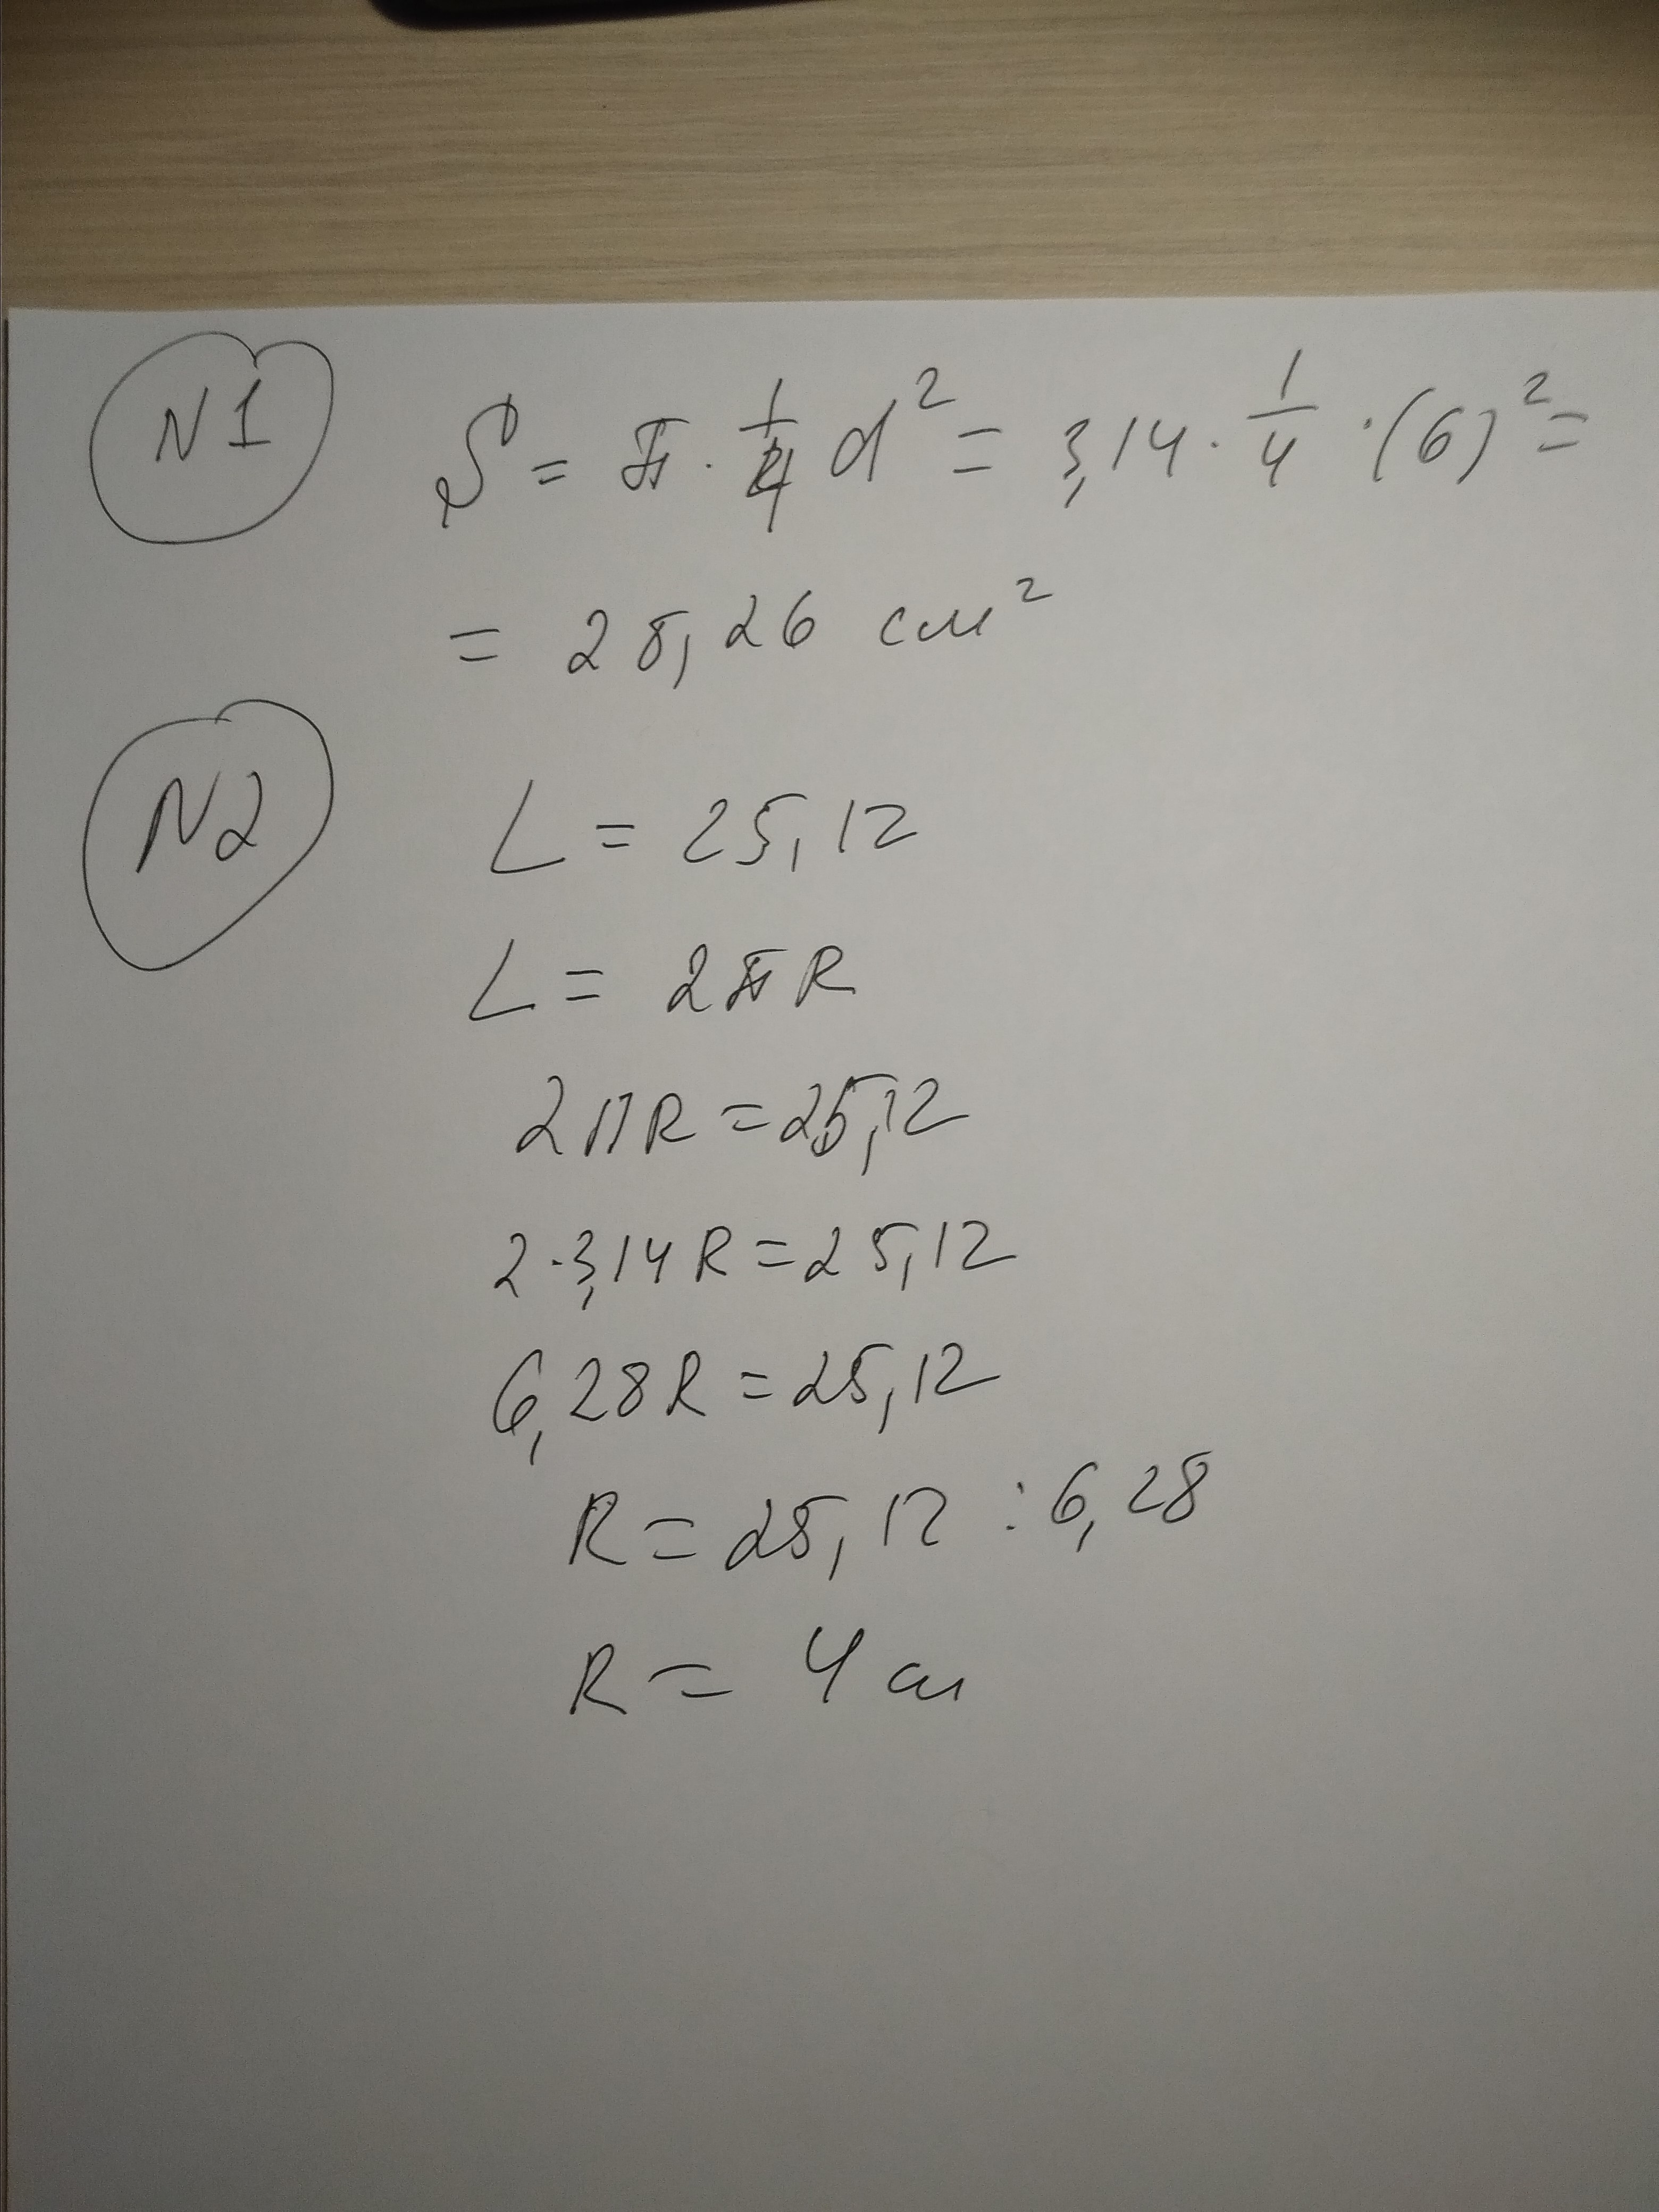 N1
S = π · 1/4 d² = 3,14 · 1/4 · (6)² =
= 28,26 см²
N2
L = 25,12
L = 2πR
2ПR = 25,12
2 · 3,14 R = 25,12
6,28 R = 25,12
R = 25,12 : 6,28
R = 4 см